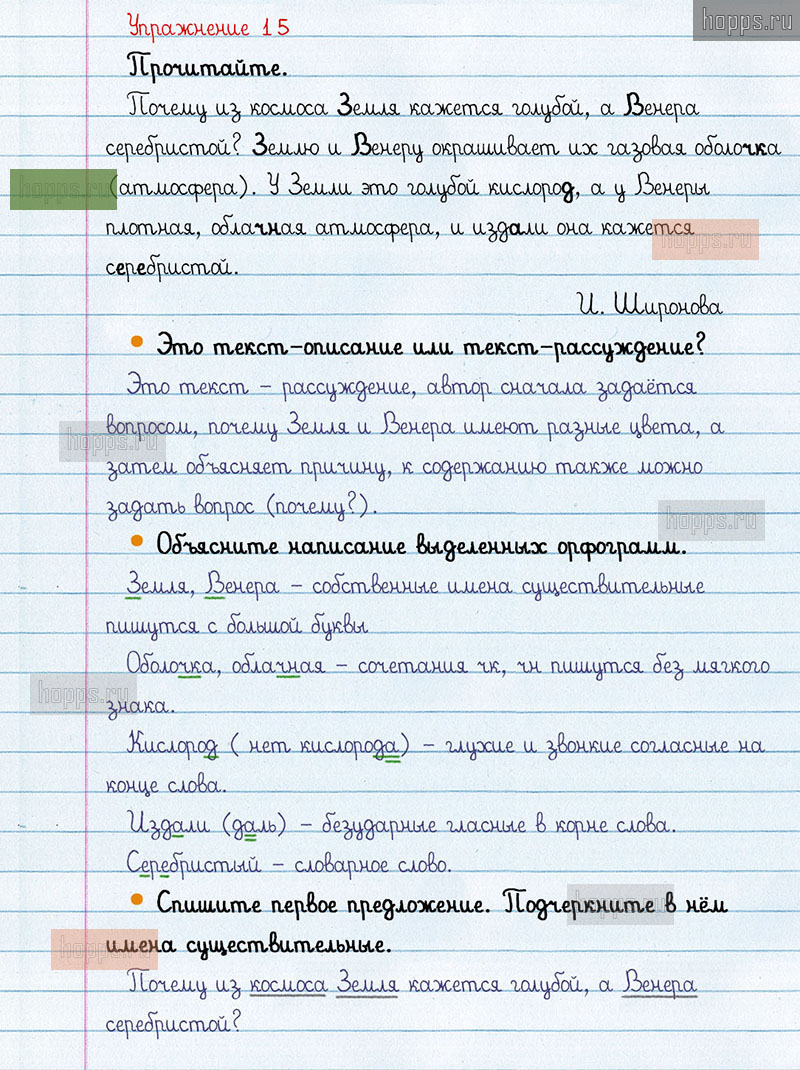 hopps.ru
Упражнение 15
Прочитайте.
Почему из космоса Земля кажется голубой, а Венера
серебристой? Землю и Венеру окрашивает их газовая оболочка
hopps.ru
(атмосфера). У Земли это голубой кислород, а у Венеры
плотная, облачная атмосфера, и издали она кажется
hopps.ru
серебристой.
И. Широнова
• Это текст-описание или текст-рассуждение?
Это текст – рассуждение, автор сначала задаётся
вопросом, почему Земля и Венера имеют разные цвета, а
hopps.ru
затем объясняет причину, к содержанию также можно
задать вопрос (почему?).
hopps.ru
• Объясните написание выделенных орфограмм.
Земля, Венера – собственные имена существительные
пишутся с большой буквы
Оболочка, облачная – сочетания чк, чн пишутся без мягкого
hopps.ru
знака.
Кислород ( нет кислорода) – глухие и звонкие согласные на
конце слова.
Издали (даль) – безударные гласные в корне слова.
Серебристый – словарное слово.
• Спишите первое предложение. Подчеркните в нём
hopps.ru
имена существительные.
hopps.ru
Почему из космоса Земля кажется голубой, а Венера
серебристой?